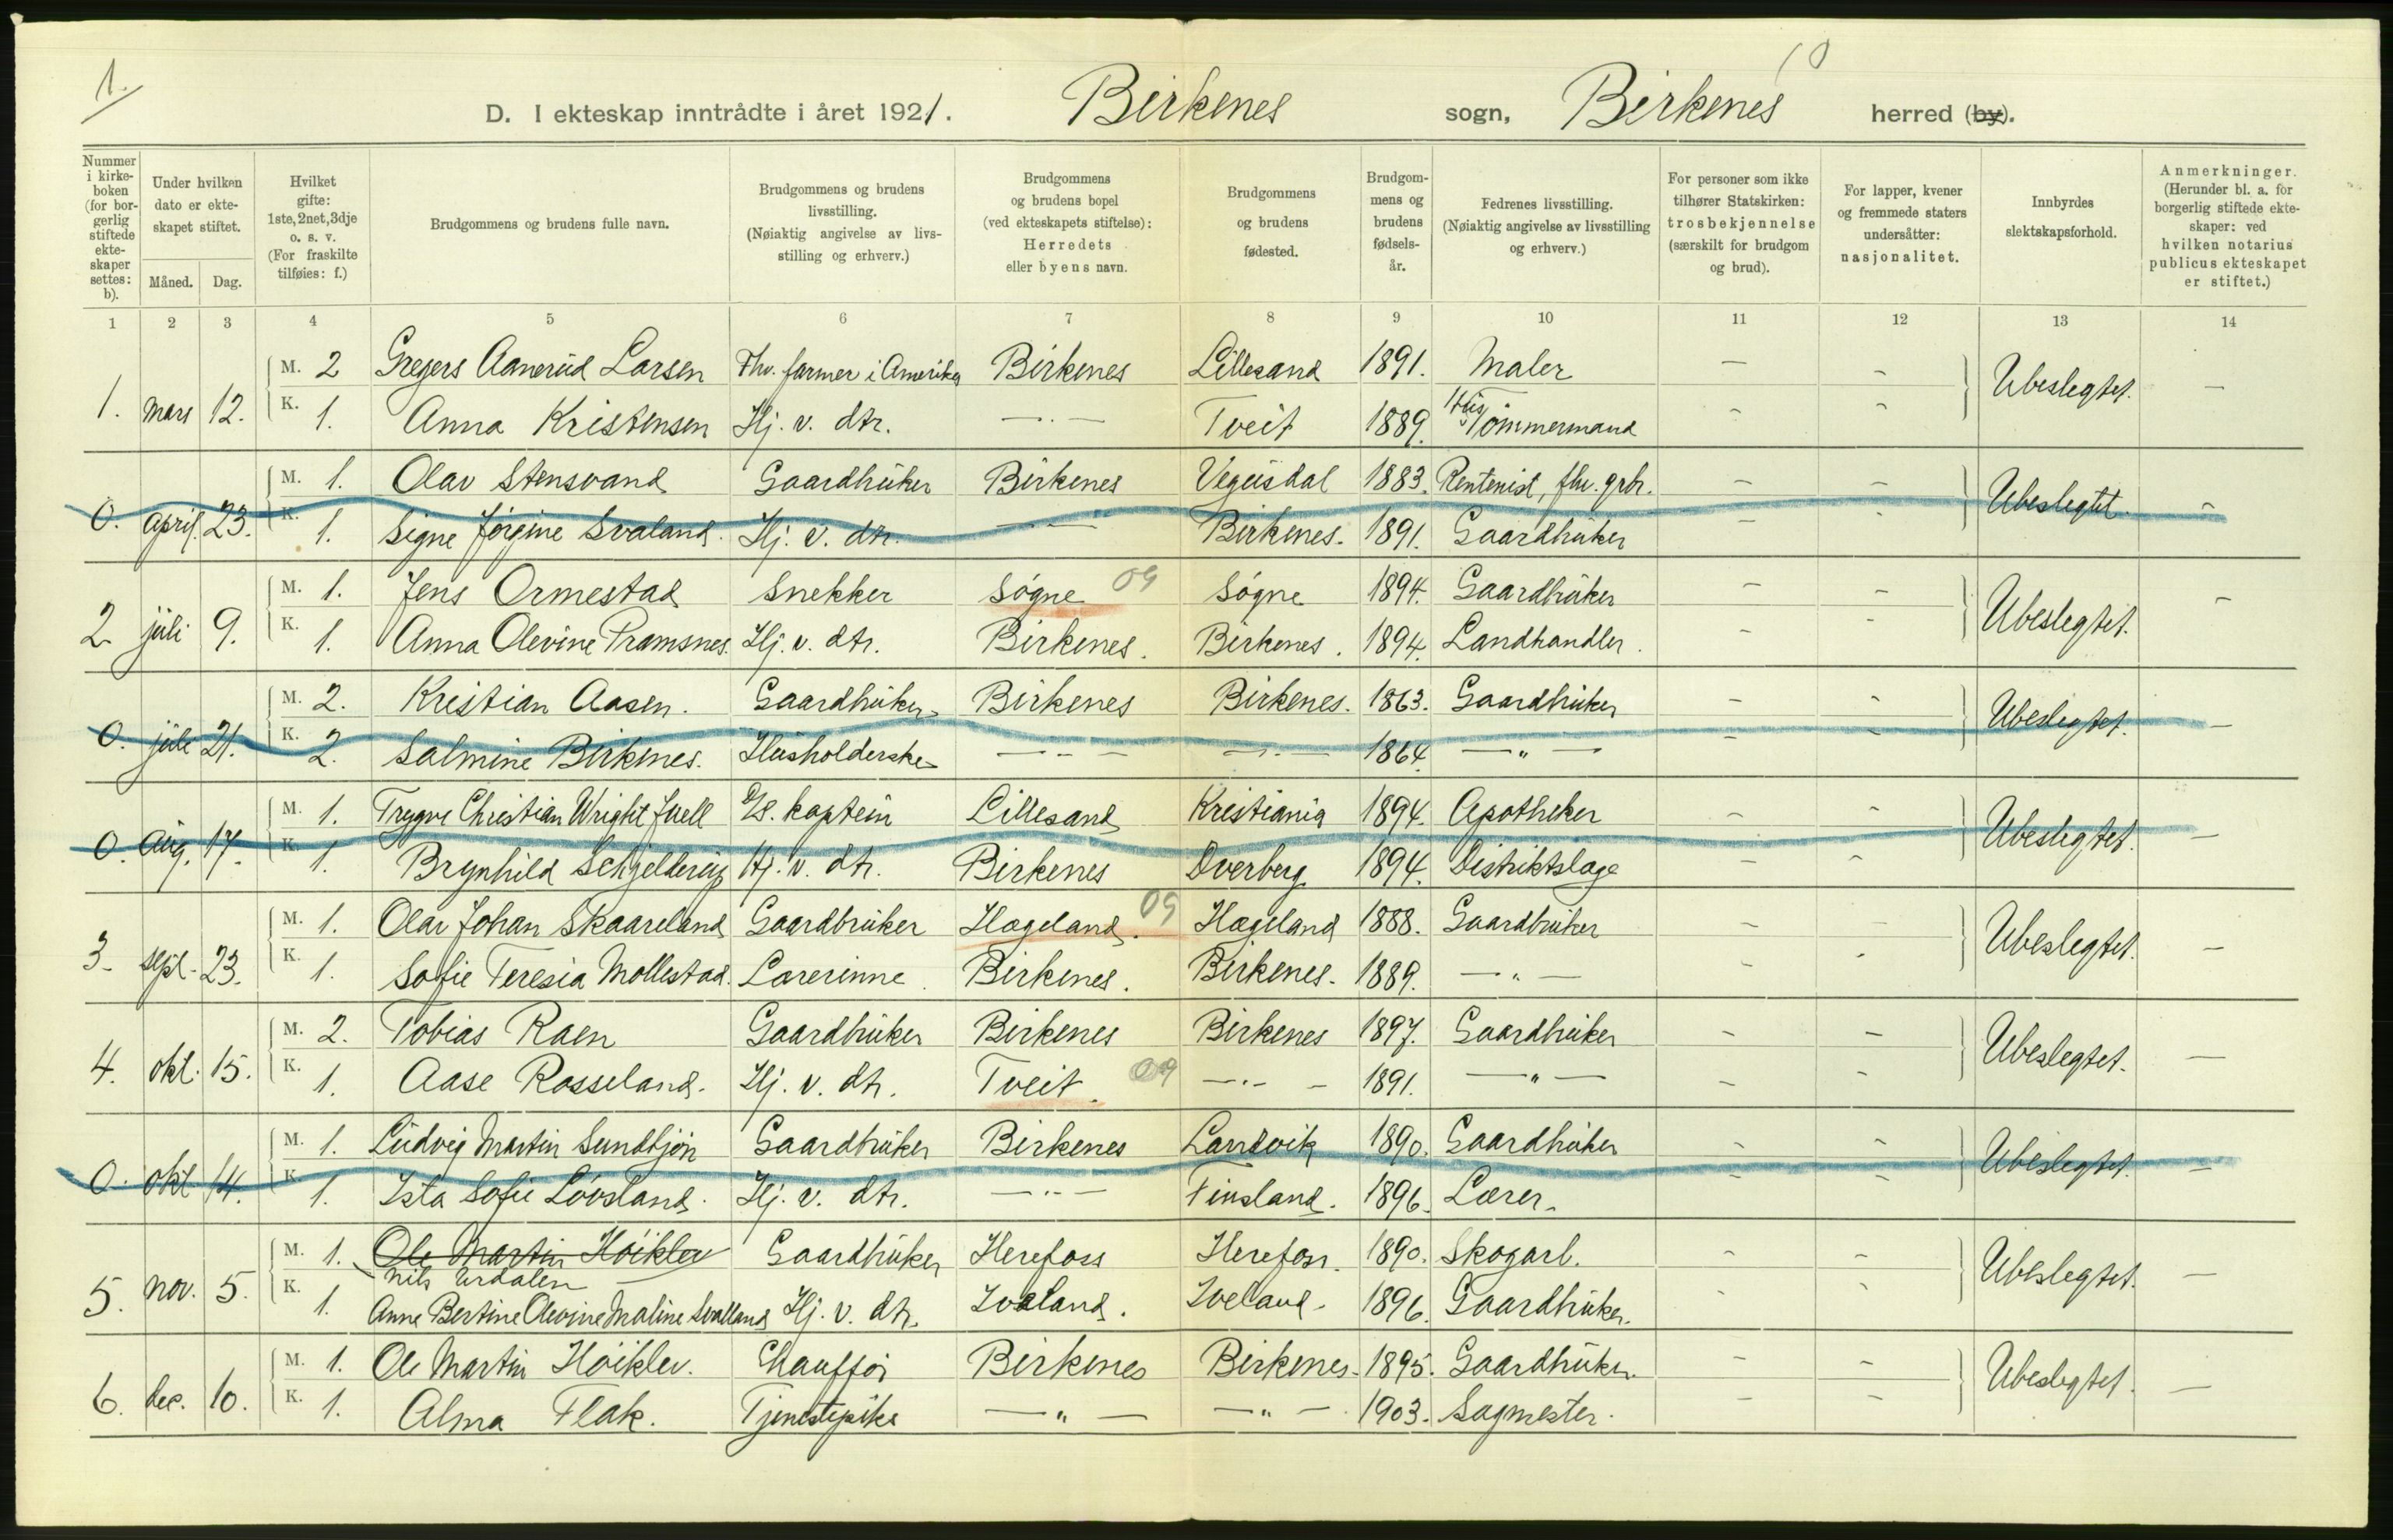 1.
10
D. I ekteskap inntrådte i året 1921. Birkenes sogn, Birkenes herred (by).
Nummer i kirke-boken (for bor-gerlig stiftede ekte-skaper settes: b).
Under hvilken dato er ekte-skapet stiftet.
Måned. Dag.
Hvilket gifte: 1ste, 2net, 3dje o. s. v. (For fraskilte tilføies: f.)
Brudgommens og brudens fulle navn.
Brudgommens og brudens livsstilling. (Nøiaktig angivelse av livs-stilling og erhverv.)
Brudgommens og brudens bopel (ved ekteskapets stiftelse): Herredets eller byens navn.
Brudgommens og brudens fødested.
Brudgom-mens og brudens fødsels-år.
Fedrenes livsstilling. (Nøiaktig angivelse av livsstilling og erhverv.)
For personer som ikke tilhører Statskirken: trosbekjennelse (særskilt for brudgom og brud).
For lapper, kvener og fremmede staters undersåtter: nasjonalitet.
Innbyrdes slektskapsforhold.
Anmerkninger. (Herunder bl. a. for borgerlig stiftede ekte-skaper: ved hvilken notarius publicus ekteskapet er stiftet.)
1 2 3 4 5 6 7 8 9 10 11 12 13 14
M. 2 Gregers Aanerud Larsen Fhv. farmer i Amerika Birkenes Lillesand 1891. Maler – –
1. mars 12. Ubeslegtet. –
K. 1. Anna Kristensen Hj. v. dtr. —"— Tveit 1889. Hustömmermand – –
M. 1. Olav Stensvand Gaardbruker Birkenes Vegusdal 1883. Rentenist, fhv. grbr. – –
0. april. 23. Ubeslegtet. –
K. 1. Signe Jörgine Svaland. Hj. v. dtr. —"— Birkenes. 1891. Gaardbruker – –
M. 1. Jens Ormestad Snekker Søgne 09 Søgne 1894. Gaardbruker – –
2 juli 9. Ubeslegtet. –
K. 1. Anna Olevine Pramsnes. Hj. v. dtr. Birkenes. Birkenes. 1894. Landhandler. – –
M. 2. Kristian Aasen. Gaardbruker Birkenes Birkenes. 1863. Gaardbruker – –
0. juli 21. Ubeslegtet. –
K. 2. Salmine Birkenes. Husholderske —"— —"— 1864. —"— – –
M. 1. Trygve Christian Wright Juell D/S. kaptein Lillesand Kristiania 1894. Apotheker – –
0. Aug. 17. Ubeslegtet. –
K. 1. Brynhild Schjelderup Hj. v. dtr. Birkenes Dverberg 1894. Distriktslæge – –
M. 1. Olav Johan Skaareland Gaardbruker Hægeland. 09 Hægeland 1888. Gaardbruker – –
3. sept. 23. Ubeslegtet. –
K. 1. Sofie Teresia Mollestad. Lærerinne. Birkenes. Birkenes. 1889. —"— – –
M. 2. Tobias Raen Gaardbruker Birkenes Birkenes 1897. Gaardbruker – –
4. okt. 15. Ubeslegtet. –
K. 1. Aase Rosseland. Hj. v. dtr. Tveit. 09 —"— 1891. —"— – –
M. 1. Ludvig Martin Sundtjön Gaardbruker Birkenes Landvik 1890. Gaardbruker – –
0. okt 14. Ubeslegtet. –
K. 1. Ista Sofie Lövsland. Hj. v. dtr. —"— Finsland. 1896. Lærer. – –
M. 1. Ole Martin Höiklev Gaardbruker Herefoss Herefoss. 1890. Skogarb. – –
Nils Urdalen
5. nov. 5. Ubeslegtet. –
K. 1. Anne Bertine Olevine Maline Svalland Hj. v. dtr. Iveland. Iveland. 1896. Gaardbruker. – –
M. 1. Ole Martin Höiklev. Chauffør Birkenes Birkenes. 1895. Gaardbruker. – –
6. dec. 10. Ubeslegtet. –
K. 1. Alma Flak. Tjenestepike —"— —"— 1903. Sagmester. – –